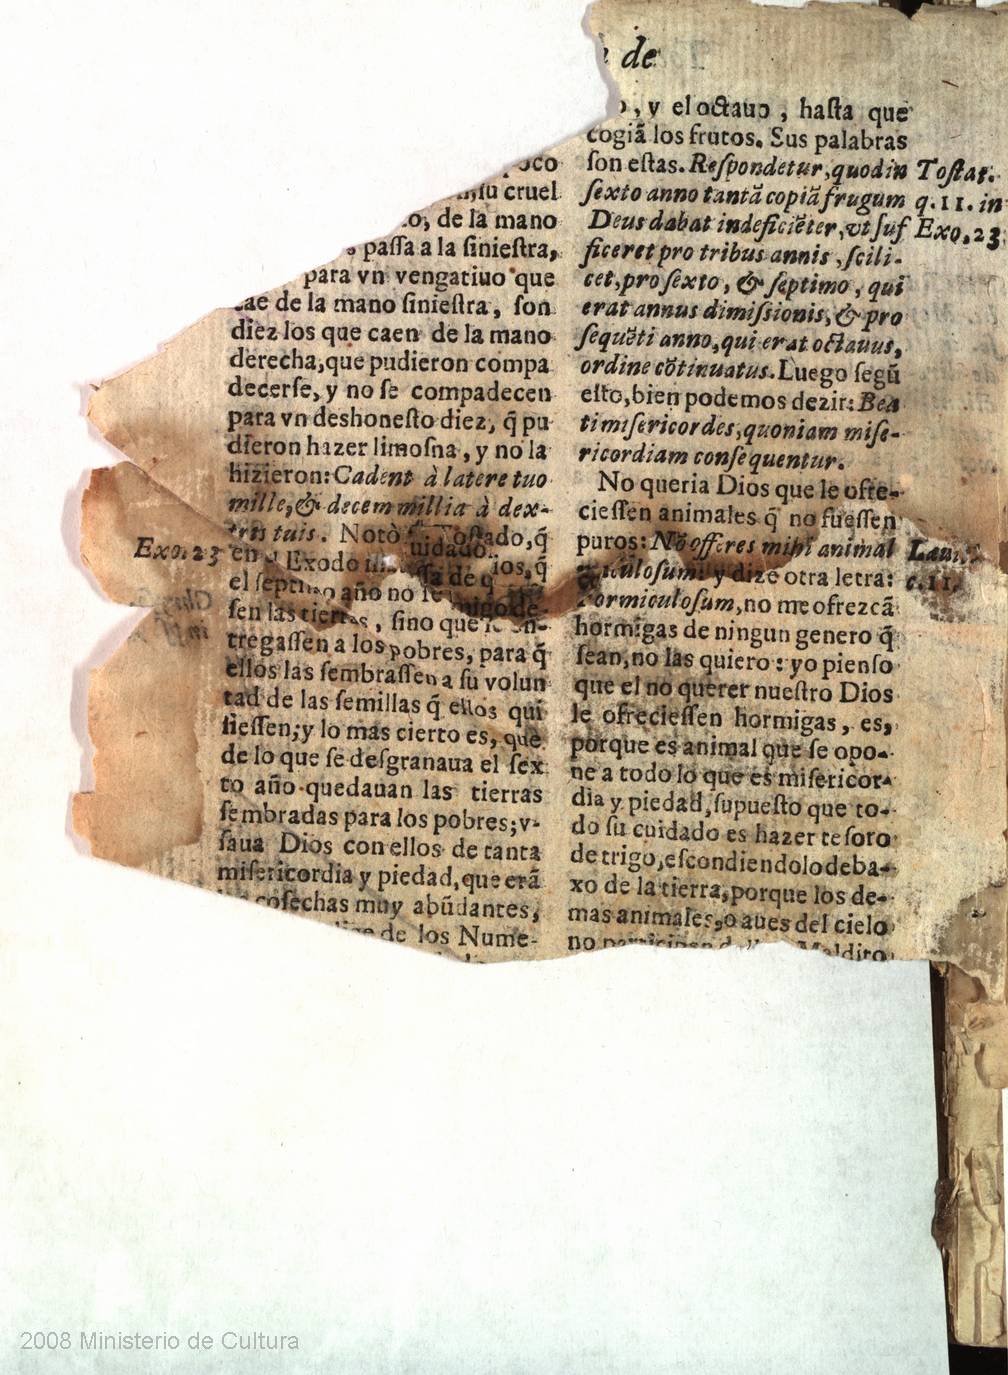 de
poco
su cruel
de la mano
passa a la siniestra,
para vn vengatiuo que
cae de la mano siniestra, son
diez los que caen de la mano
derecha, que pudieron compa
decerse, y no se compadecen
para vn deshonesto diez, q̃ pu
dieron hazer limosna, y no la
hizieron: Cadent à latere tuo
mille, & decem millia à dex-
tris tuis. Notò Tostado, q̃
Exo. 23
en Exodo
el septimo año no se
sen las tierras, sino que
tregassen a los pobres, para q̃
ellos las sembrassen a su volun
tad de las semillas q̃ ellos qui
siessen; y lo mas cierto es, que
de lo que se desgranaua el sex
to año quedauan las tierras
sembradas para los pobres; v-
saua Dios con ellos de tanta
misericordia y piedad, que erã
cosechas muy abũdantes,
de los Nume-
, y el octauo, hasta que
cogiã los frutos. Sus palabras
son estas. Respondetur, quod in
sexto anno tantã copiã frugum
Deus dabat indeficiẽter, vt suf
ficeret pro tribus annis, scili-
cet, pro sexto, & septimo, qui
erat annus dimissionis, & pro
sequẽti anno, qui erat octauus,
ordine cõtinuatus. Luego segũ
esto, bien podemos dezir: Bea
ti misericordes, quoniam mise-
ricordiam consequentur.
Tostat.
q. 11. in
Exo. 23
No queria Dios que le ofre-
ciessen animales q̃ no fuessen
puros: Nõ offeres mihi animal
y dize otra letra:
Formiculosum, no me ofrezcã
hormigas de ningun genero q̃
sean, no las quiero: yo pienso
que el no querer nuestro Dios
le ofreciessen hormigas, es,
porque es animal que se opo-
ne a todo lo que es misericor-
dia y piedad, supuesto que to-
do su cuidado es hazer tesoro
de trigo, escondiendolo deba-
xo de la tierra, porque los de-
mas animales, o aues del cielo
no
Maldito
c. 11.
2008 Ministerio de Cultura